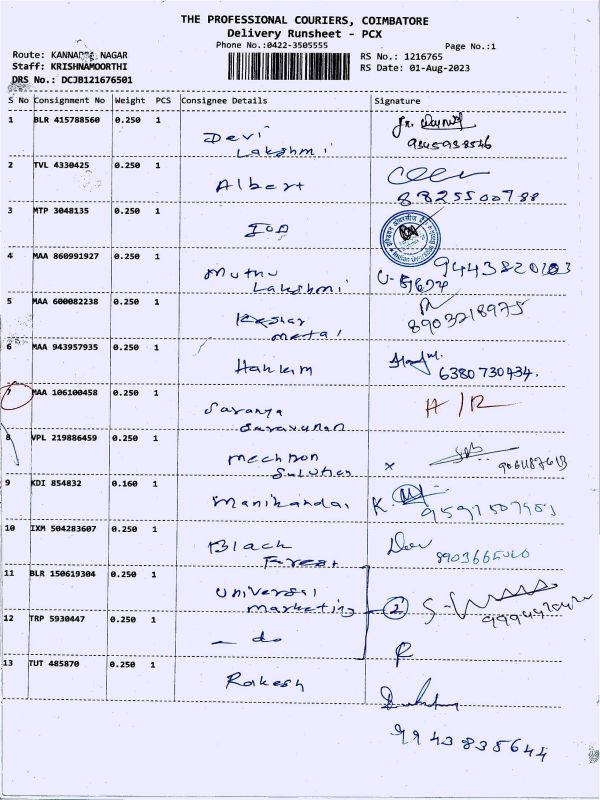 THE PROFESSIONAL COURIERS, COIMBATORE
Delivery Runsheet - PCX
Phone No.:0422-3505555
Page No.:1
Route: KANNADA NAGAR
RS No.: 1216765
Staff: KRISHNAMOORTHI
RS Date: 01-Aug-2023
DRS No.: DCJB121676501
S No Consignment No Weight PCS Consignee Details Signature
1 BLR 415788560 0.250 1 Devi Lakshmi
2 TVL 4330425 0.250 1 Albert 8825500788
3 MTP 3048135 0.250 1 IOB
4 MAA 860991927 0.250 1 Muthu Lakshmi
5 MAA 600082238 0.250 1 Keshar metal 8903218975
6 MAA 943957935 0.250 1 Hakkim 6380730434.
7 MAA 106100458 0.250 1 Saranya Saravanan A/R
8 VPL 219886459 0.250 1 mechton Solution x
9 KDI 854832 0.160 1 Manikandan K.
10 IXM 504283607 0.250 1 Black Forest
11 BLR 150619304 0.250 1 Universal marketing 2
12 TRP 5930447 0.250 1 - do
13 TUT 485870 0.250 1 Rakesh
9943835644